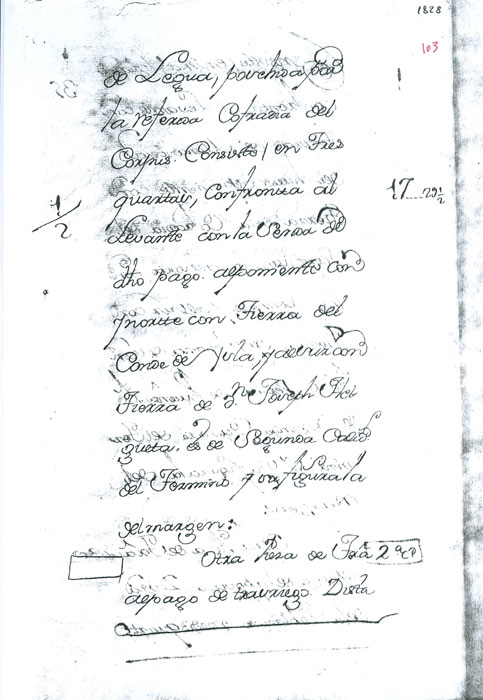 1828
103
de Legua, posehida por
la referida Cofradia del
Corpus Consisto / en Tres
quartas, confronta al
17 29 1/2
1/2
Levante con la Senda de
dho pago alpomente con
y norte con Tierra del
Conde de Yula, y alsur con
Tierra de Dn Joseph
gueta. es de Segunda Calid
del Termino y su figura la
del margen:
Otra Pieza de Tra 2 qs
alpago de Dista